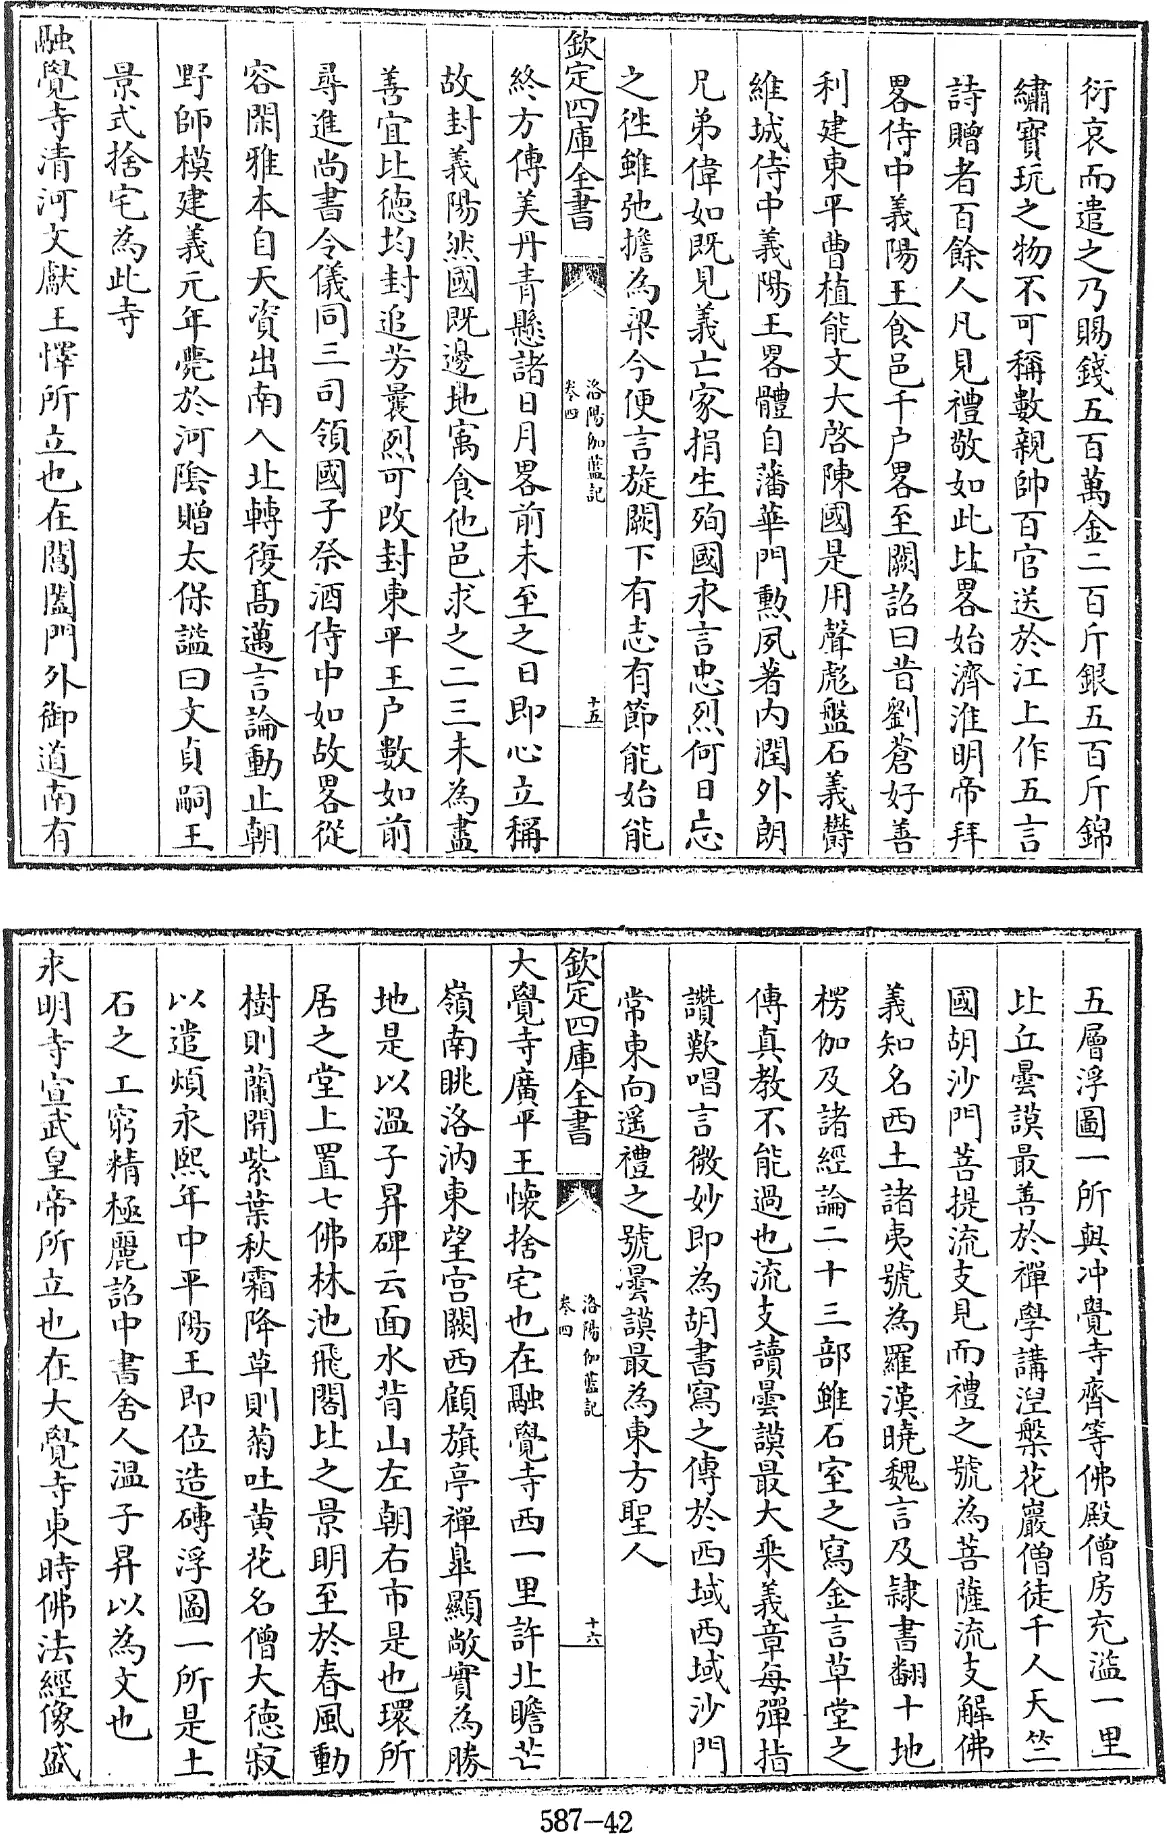 衍哀而遣之乃賜錢五百萬金二百斤銀五百斤錦
繡寶玩之物不可稱數親帥百官送於江上作五言
詩贈者百餘人凡見禮敬如此比畧始濟淮明帝拜
畧侍中義陽王食邑千户畧至闕詔曰昔劉蒼好善
利建東平曹植能文大啓陳國是用聲彪盤石義鬱
維城侍中義陽王畧體自藩華門勲夙著内潤外朗
兄弟偉如既見義亡家捐生殉國永言忠烈何日忘
之徃雖弛擔為梁今便言旋闕下有志有節能始能
欽定四庫全書
洛陽伽藍記
卷四
十五
終方傳美丹青懸諸日月畧前未至之日即心立稱
故封義陽然國既邊地寓食他邑求之二三未為盡
善宜比徳均封追芳曩烈可改封東平王户數如前
尋進尚書令儀同三司領國子祭酒侍中如故畧從
容閑雅本自天資出南入北轉復髙邁言論動止朝
野師模建義元年薨於河陰贈太保諡曰文貞嗣王
景式捨宅為此寺
融覺寺清河文獻王懌所立也在閶闔門外御道南有
五層浮圖一所與冲覺寺齊等佛殿僧房充滥一里
比丘曇謨最善於禪學講涅槃花嚴僧徒千人天竺
國胡沙門菩提流支見而禮之號為菩薩流支解佛
義知名西土諸夷號為羅漢曉魏言及隷書翻十地
楞伽及諸經論二十三部雖石室之寫金言草堂之
傳真教不能過也流支讀曇謨最大乗義章每彈指
讚歎唱言微妙即為胡書寫之傳於西域西域沙門
常東向遥禮之號曇謨最為東方聖人
欽定四庫全書
洛陽伽藍記
卷四
十六
大覺寺廣平王懷捨宅也在融覺寺西一里許北瞻芒
嶺南眺洛汭東望宫闕西顧旗亭禪臯顯敞實為勝
地是以温子昇碑云面水背山左朝右市是也環所
居之堂上置七佛林池飛閣比之景明至於春風動
樹則蘭開紫葉秋霜降草則菊吐黄花名僧大徳寂
以遣煩永熙年中平陽王即位造磚浮圖一所是土
石之工窮精極麗詔中書舍人温子昇以為文也
永明寺宣武皇帝所立也在大覺寺東時佛法經像盛
587-42